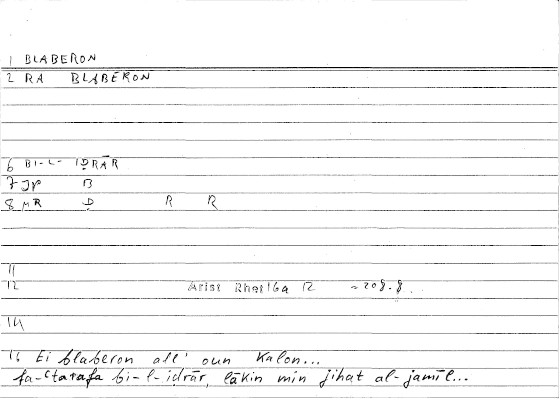 1 BLABERON
2 RA BLABERON
6 BI-L-IḌRĀR
7 B
8 MR Ḍ R R
11
12 Arist Rhet
14
16 Ei blaberon all' oun kalon...
fa-ʿtarafa bi-l-iḍrār, lākin min jihat al-jamīl...